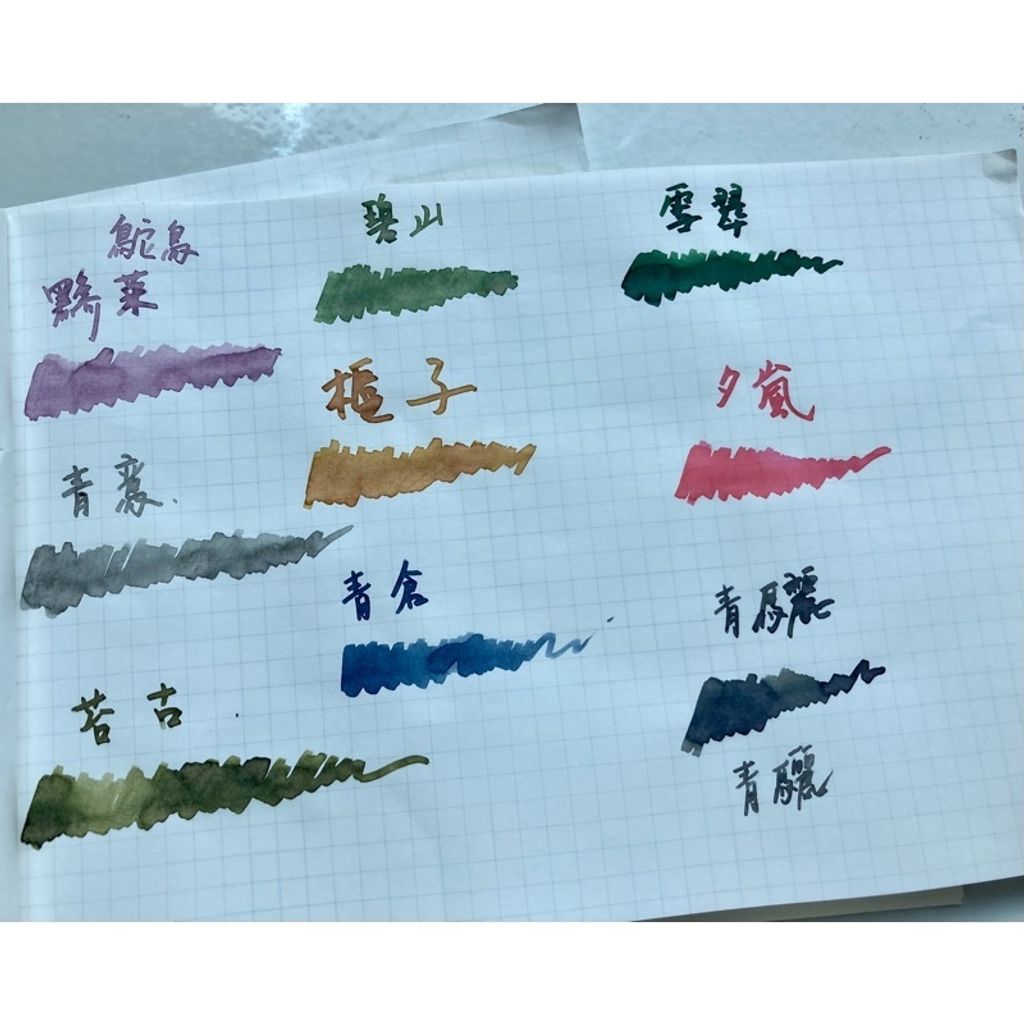 鴕鳥
黟菜
青
苔古
碧山
梔子
青倉
雪翠
夕嵐
青驪
青驪